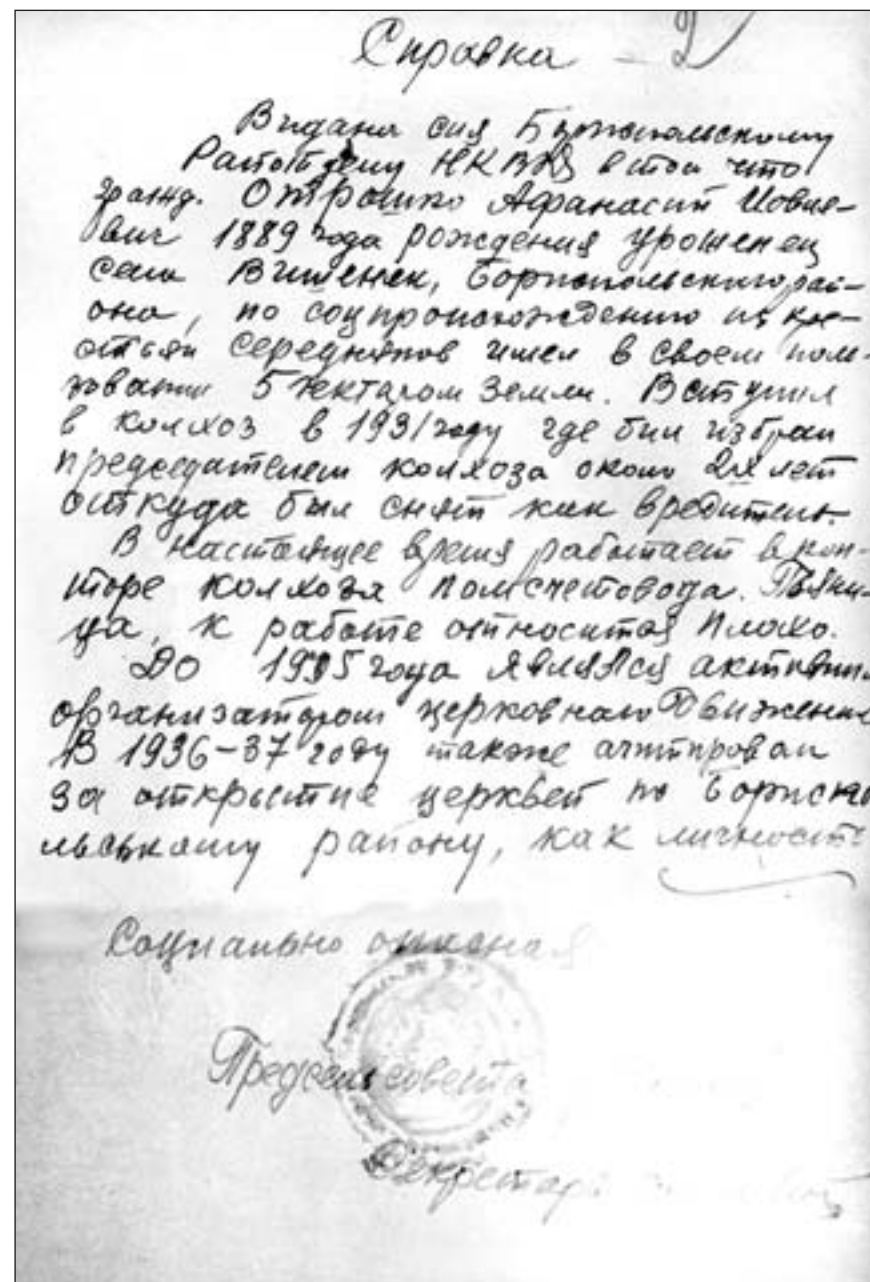 Справка - 2
Видана сия Бориспольскому
Райотделу НКВД в том что
гражд. Отрошко Афанасий Иовле-
вич 1889 года рождения урошенец
села Вишенек, Бориспольского рай-
она, по соцпроисхождению из кре-
стьян середняков имел в своем поль-
зовании 5 гектаром земли. Вступил
в колхоз в 1931 году где бил избран
председателем колхоза около 2х лет
откуда был снят как вредитель.
В настоящее время работает в кон-
торе колхоза помсчетовода. Пяни-
ца, к работе относится плохо.
До 1935 года являлся активним
организатором церковного движения
В 1936-37 году также агитировал
за открытие церквей по Борисп-
ольському району, как личность
Социально опасная
Предсельсовета
Секретарь